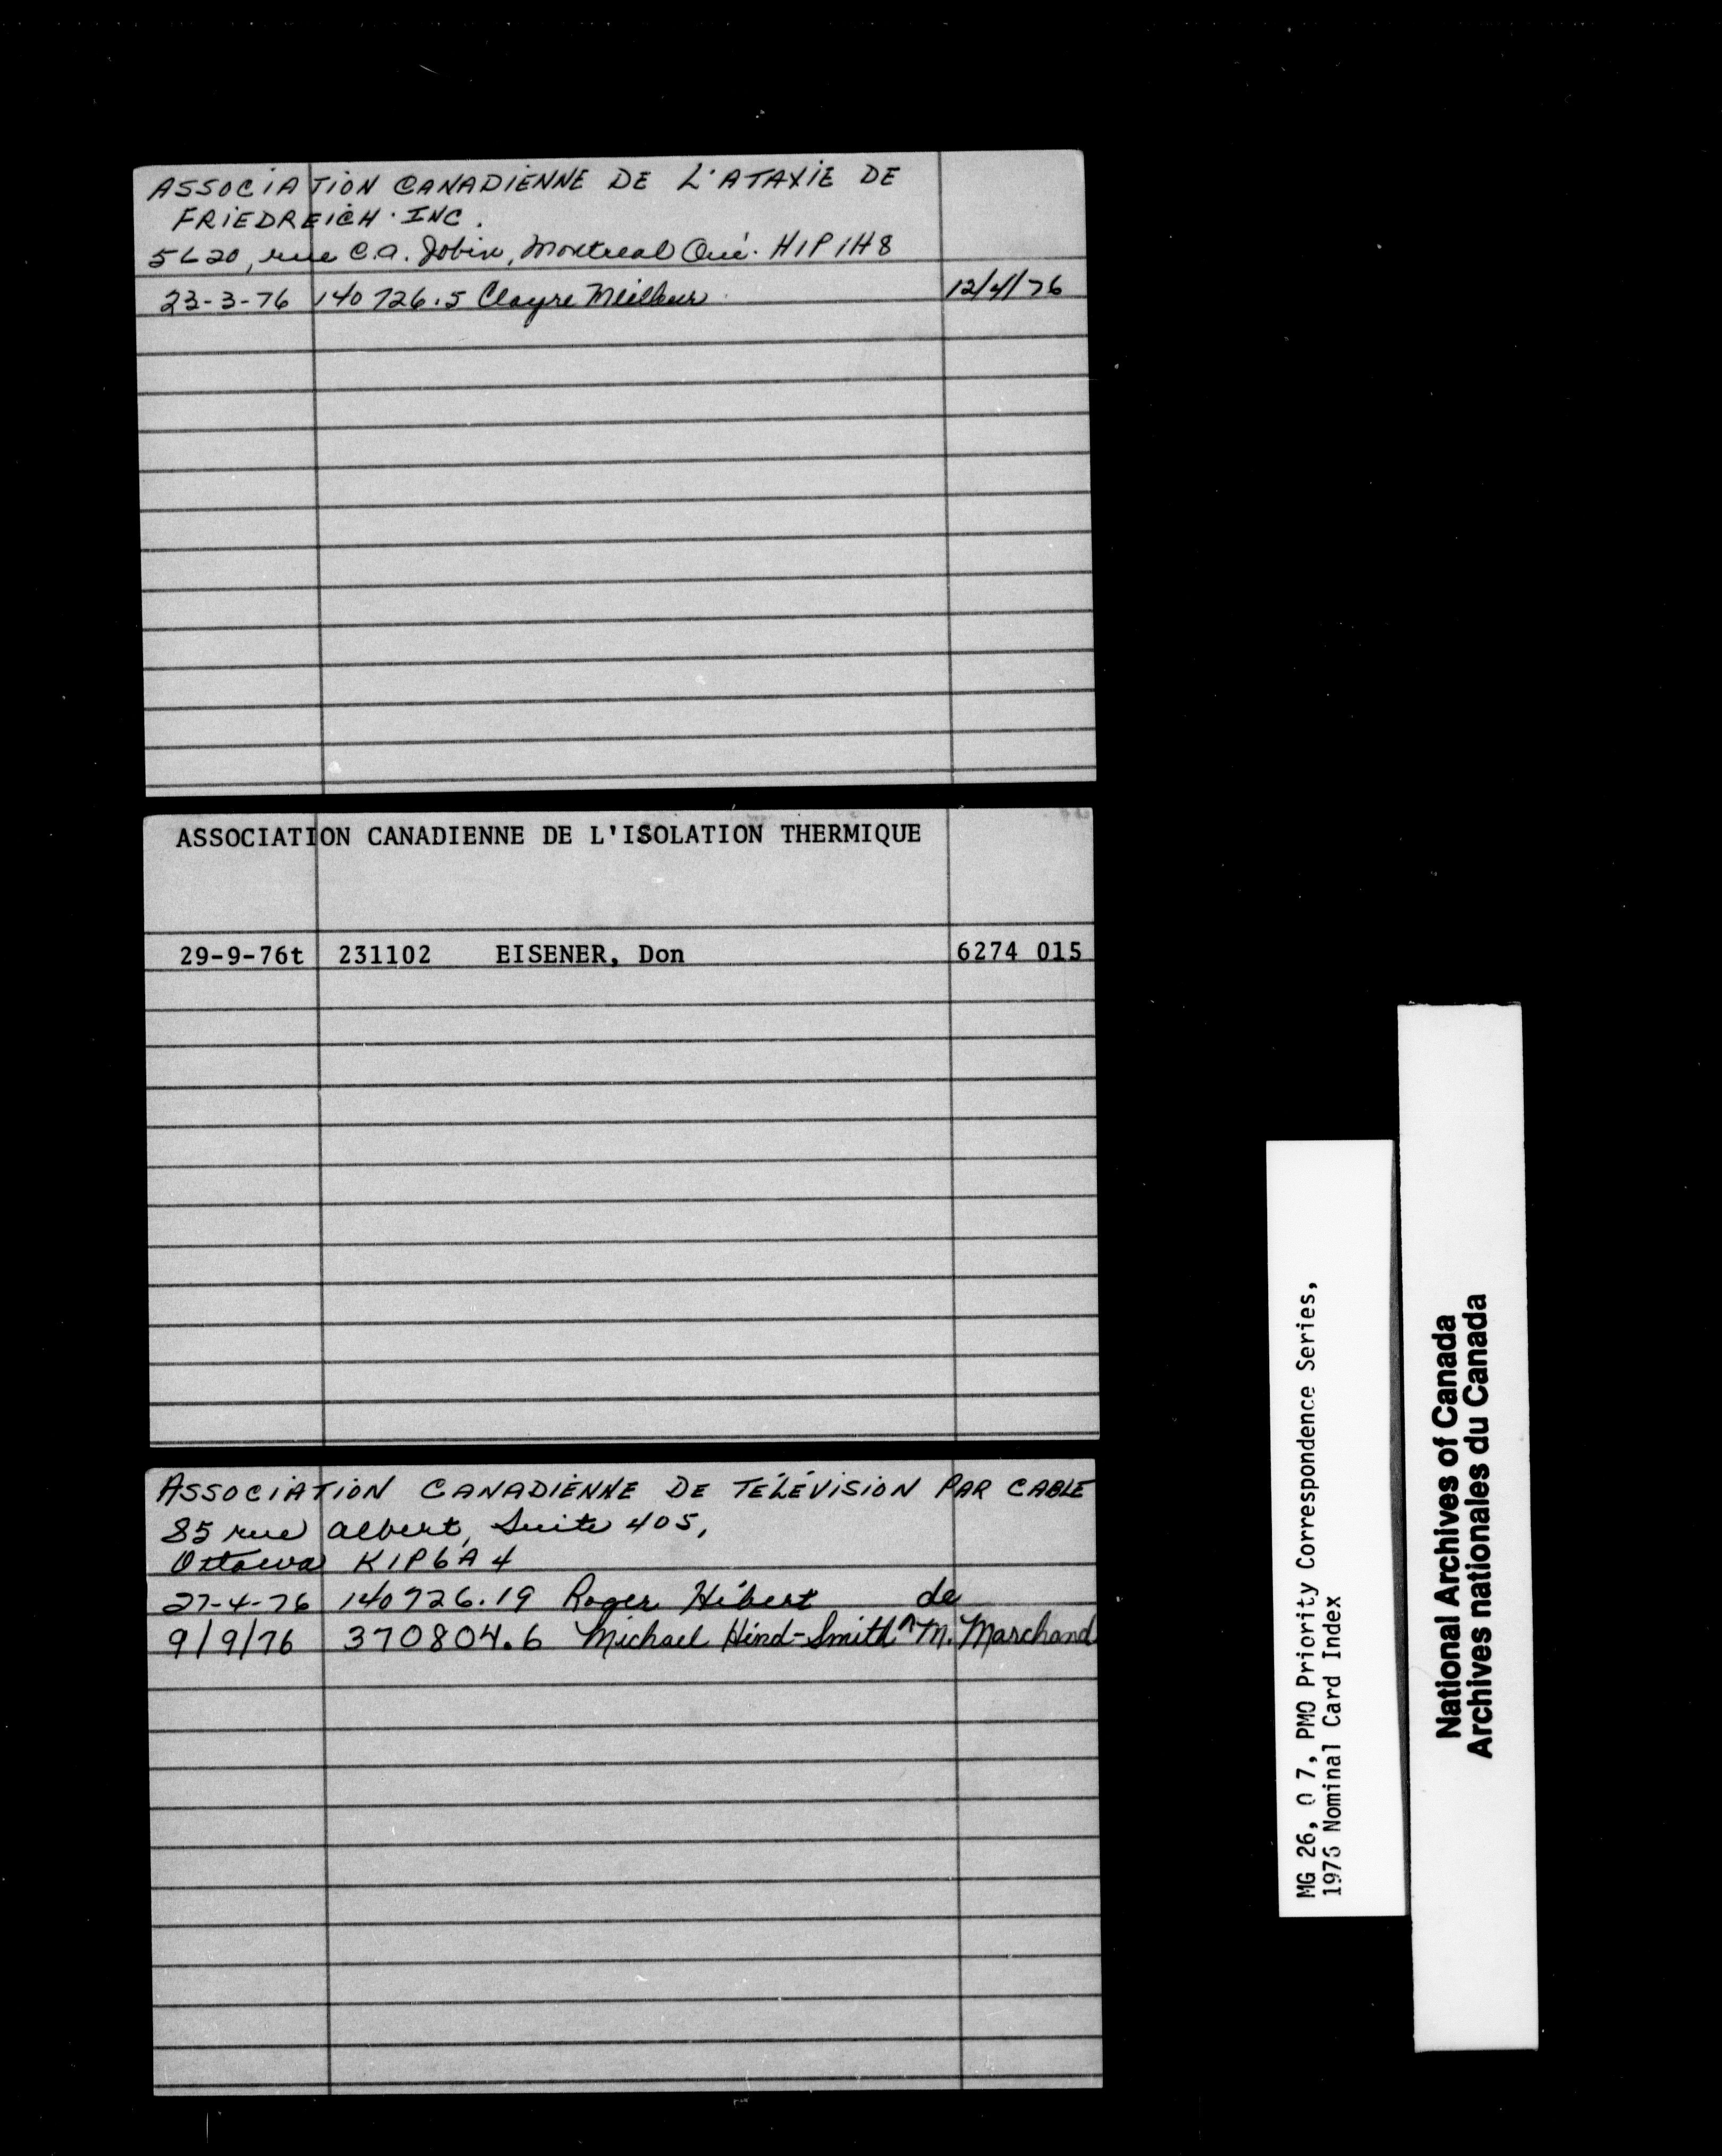 ASSOCIATION CANADIENNE DE L'ATAXIE DE
FRIEDREICH. INC.
5620, rue C.A. Jobin, Montreal Qué. H1P 1H8
23-3-76 140726.5 Clayre Meilleur 12/4/76
ASSOCIATION CANADIENNE DE L'ISOLATION THERMIQUE
29-9-76t 231102 EISENER, Don 6274 015
ASSOCIATION CANADIENNE DE TÉLÉVISION PAR CABLE
85 rue Albert, Suite 405,
Ottawa K1P6A4
27-4-76 140726.19 Roger Hébert
9/9/76 370804.6 Michael Hind-Smith de M. Marchand
MG 26, O 7, PMO Priority Correspondence Series,
1976 Nominal Card Index
National Archives of Canada
Archives nationales du Canada